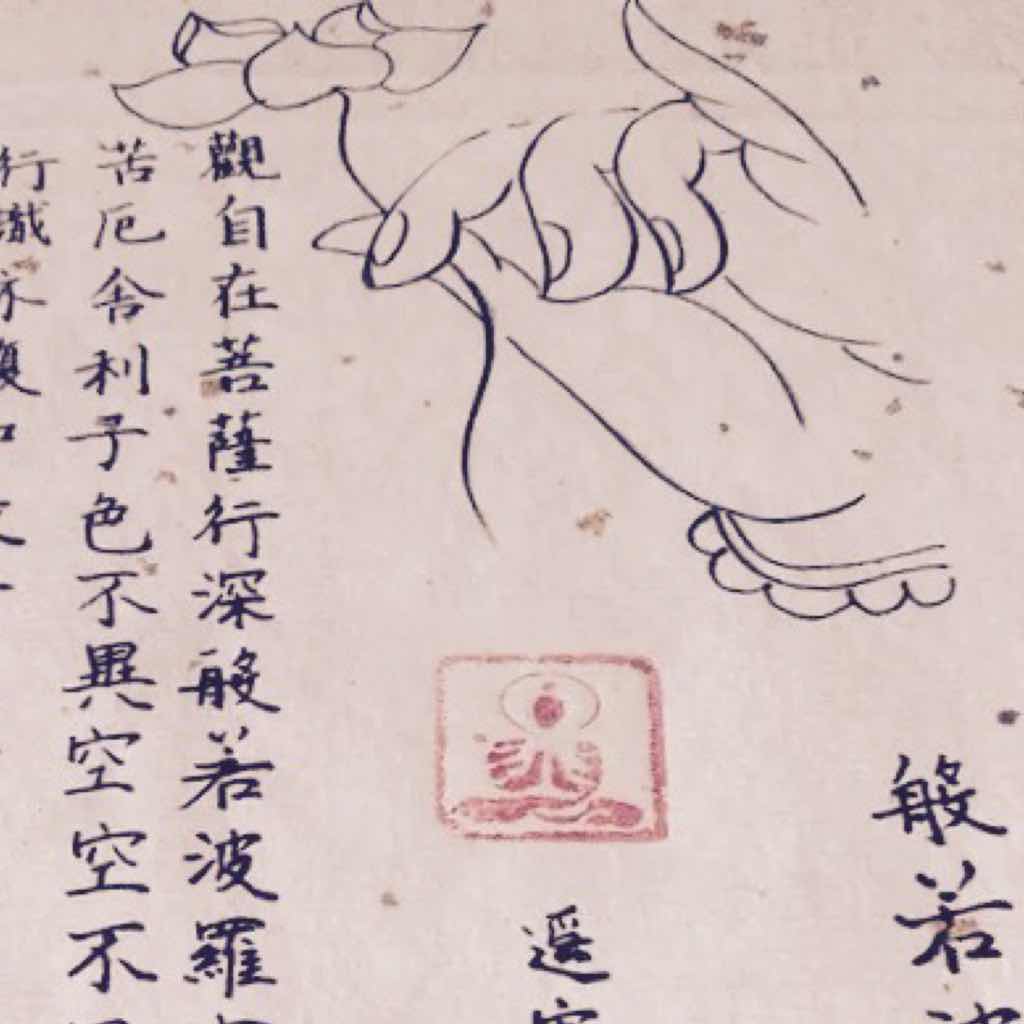 般若波
遥
觀自在菩薩行深般若波羅
苦厄舍利子色不異空空不
行識亦復